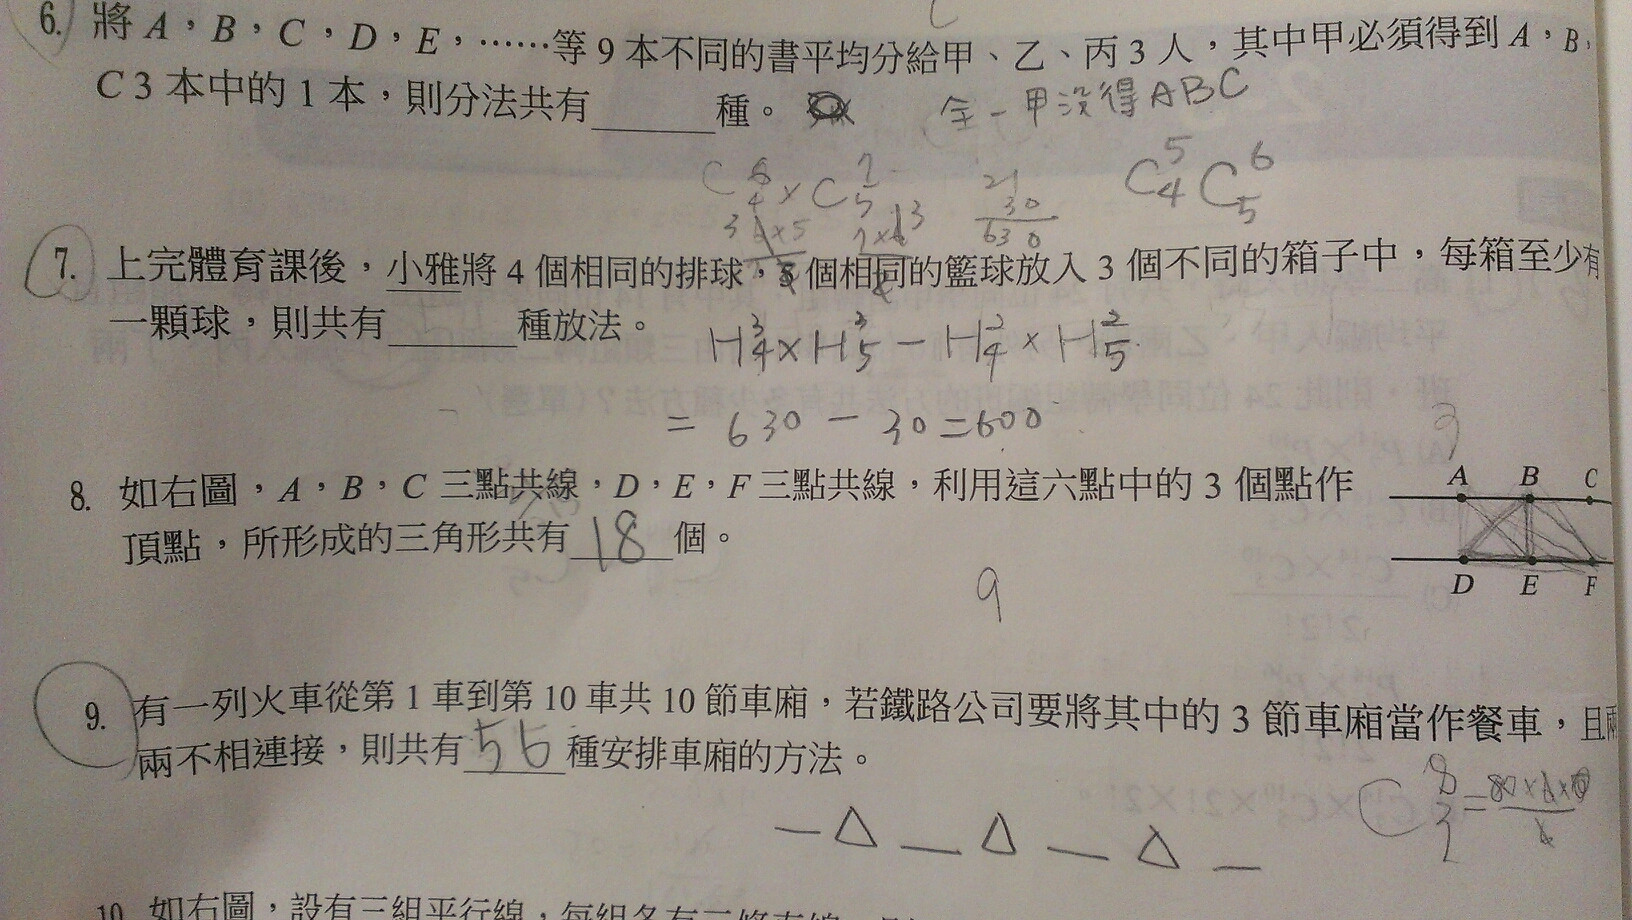 6. 將 A，B，C，D，E，……等 9 本不同的書平均分給甲、乙、丙 3 人，其中甲必須得到 A，B，
C 3 本中的 1 本，則分法共有______種。 全－甲没得ABC
C 6 4 × C 7 5
21
30
630
C 5 4 C 6 5
7. 上完體育課後，小雅將 4 個相同的排球，5 個相同的籃球放入 3 個不同的箱子中，每箱至少有
一顆球，則共有______種放法。
H 3 4 × H 3 5 － H 2 4 × H 2 5
= 630 － 30 = 600
8. 如右圖，A，B，C 三點共線，D，E，F 三點共線，利用這六點中的 3 個點作
頂點，所形成的三角形共有 18 個。
A B C
D E F
9
9. 有一列火車從第 1 車到第 10 車共 10 節車廂，若鐵路公司要將其中的 3 節車廂當作餐車，且兩
兩不相連接，則共有 56 種安排車廂的方法。
C 8 3 =
10. 如右圖，設有三組平行線，每組各有三條直線，